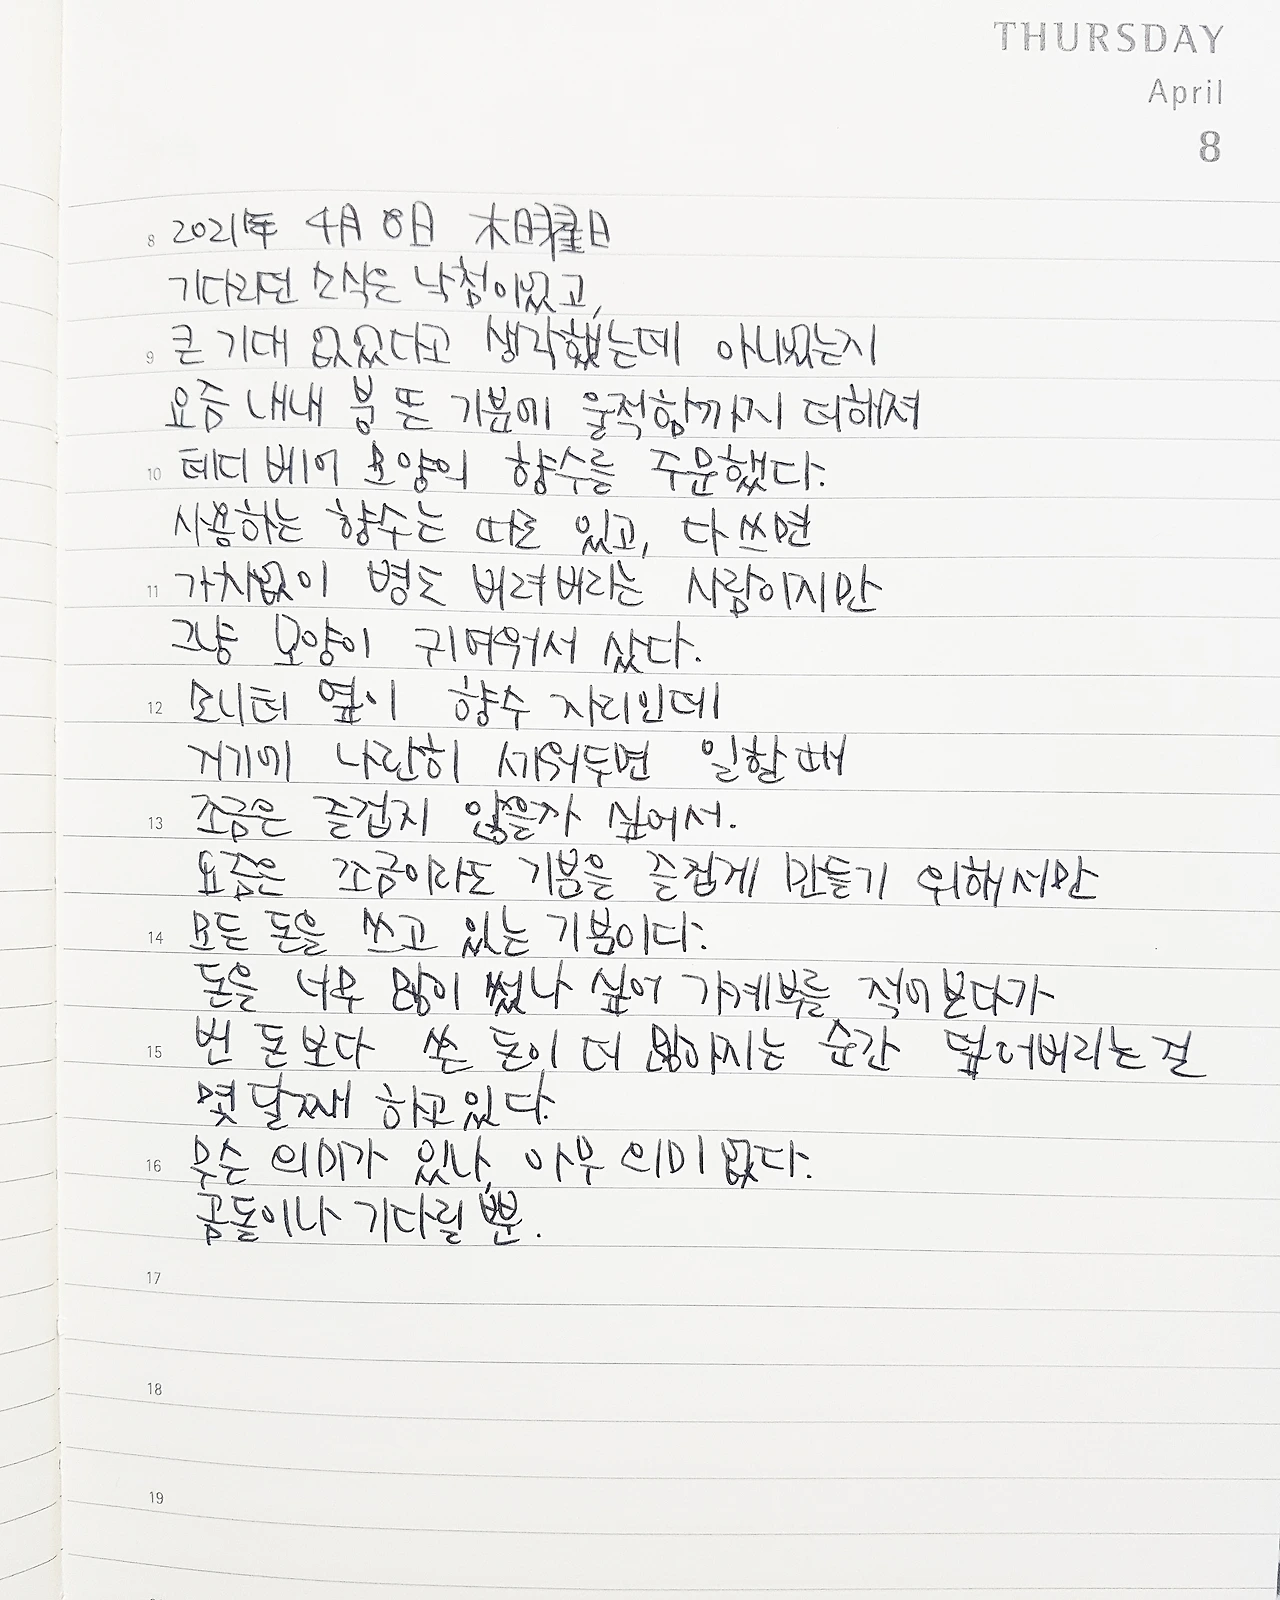 THURSDAY
April
8
8 2021年 4月 8日 木曜日
기다리던 소식은 낙첨이었고,
9 큰 기대 없었다고 생각했는데 아니었는지
요즘 내내 붕 뜬 기분에 울적함까지 더해져
10 테디 베어 모양의 향수를 주문했다.
사용하는 향수는 따로 있고, 다 쓰면
11 가차없이 병도 버려버리는 사람이지만
그냥 모양이 귀여워서 샀다.
12 모니터 옆이 향수 자리인데
거기에 나란히 세워두면 일할 때
13 조금은 즐겁지 않을까 싶어서.
요즘은 조금이라도 기분을 즐겁게 만들기 위해서만
14 모든 돈을 쓰고 있는 기분이다.
돈을 너무 많이 썼나 싶어 가계부를 적어본다가
15 번 돈보다 쓴 돈이 더 많아지는 순간 덮어버리는 걸
몇 달째 하고있다.
16 무슨 의미가 있나, 아무 의미 없다.
곰돌이나 기다릴 뿐.
17
18
19